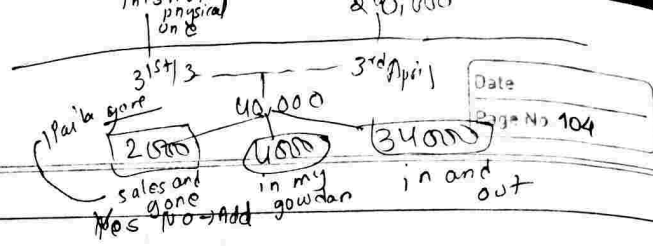 physical
one
31st/3 3rd April
Date
Page No 104
gone
40,000
2000 4000 34000
sales and gone
in my gowdan
in and out
Yes No → Add